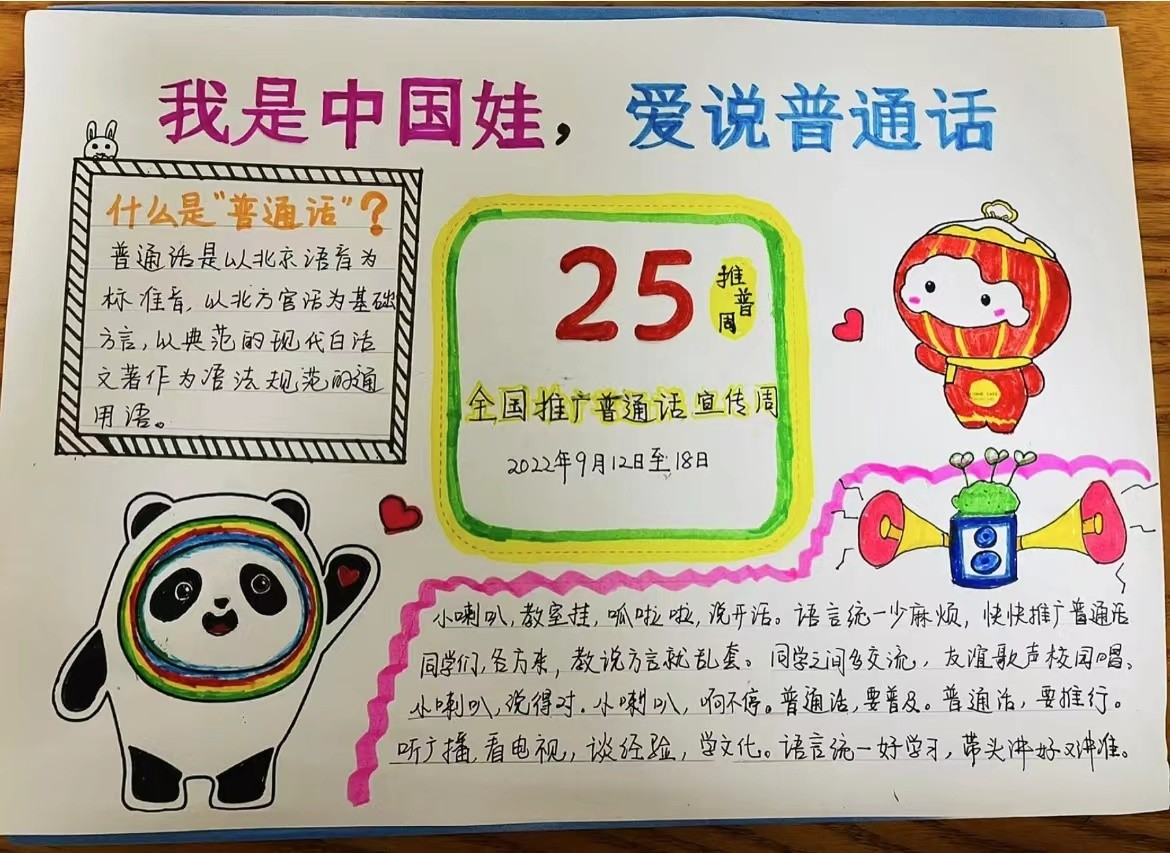 我是中国娃，爱说普通话
什么是“普通话”？
普通话是以北京语音为
标准音，以北方官话为基础
方言，以典范的现代白话
文著作为语法规范的通
用语。
25
推普周
全国推广普通话宣传周
2022年9月12日至18日
小喇叭，教室挂，呱啦啦，说开话。语言统一少麻烦，快快推广普通话
同学们，各方来，教说方言就乱套。同学之间多交流，友谊歌声校园唱、
小喇叭，说得对．小喇叭，响不停。普通话，要普及。普通话，要推行。
听广播，看电视，谈经验，学文化。语言统一好学习，带头讲好又讲准。